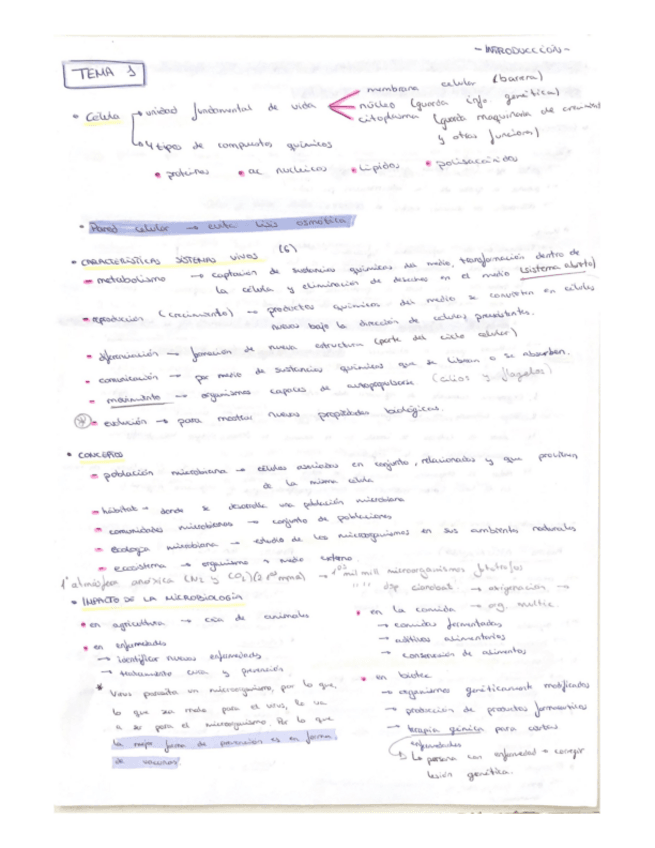 - INTRODUCCIÓN -
TEMA 1
• Célula → unidad fundamental de vida
membrana celular (barrera)
núcleo (guarda info genética)
citoplasma (guarda maquinaria de crecimiento
y otras funciones)
↳ 4 tipos de compuestos químicos
• proteínas • ac. nucleicos • lípidos • polisacáridos
• Pared celular → evita lisis osmótica
• CARACTERÍSTICAS SISTEMAS VIVOS (6)
- metabolismo → captación de sustancias químicas del medio, transformación dentro de
la célula y eliminación de desechos en el medio (sistema abierto)
- reproducción (crecimiento) → productos químicos del medio se convierten en células
nuevas bajo la dirección de células preexistentes.
- diferenciación → formación de nueva estructura (parte del ciclo celular)
- comunicación → por medio de sustancias químicas que se liberan o se absorben.
- movimiento → organismos capaces de autopropulsarse (cilios y flagelos)
- evolución → para mostrar nuevas propiedades biológicas.
• CONCEPTOS
- población microbiana → células asociadas en conjunto, relacionadas y que provienen
de la misma célula
- hábitat → donde se desarrolla una población microbiana
- comunidades microbianas → conjunto de poblaciones
- ecología microbiana → estudio de los microorganismos en sus ambientes naturales
- ecosistema → organismo + medio externo.
1ª atmósfera anóxica (N2 y CO2) → mil mill microorganismos fotótrofos
dsp cianobact. → oxigenación →
→ org. multic.
• IMPACTO DE LA MICROBIOLOGÍA
• en agricultura → cría de animales
• en enfermedades
→ identificar nuevas enfermedades
→ tratamiento cura y prevención
* Virus parasita un microorganismo, por lo que,
lo que sea malo para el virus, le va
a ser para el microorganismo. Por lo que
la mejor forma de prevención es en forma
de vacunas.
• en la comida
→ comidas fermentadas
→ aditivos alimentarios
→ conservación de alimentos
• en biotec
→ organismos genéticamente modificados
→ producción de productos farmaceúticos
→ terapia génica para ciertas
enfermedades
↳ La persona con enfermedad → corregir
lesión genética.